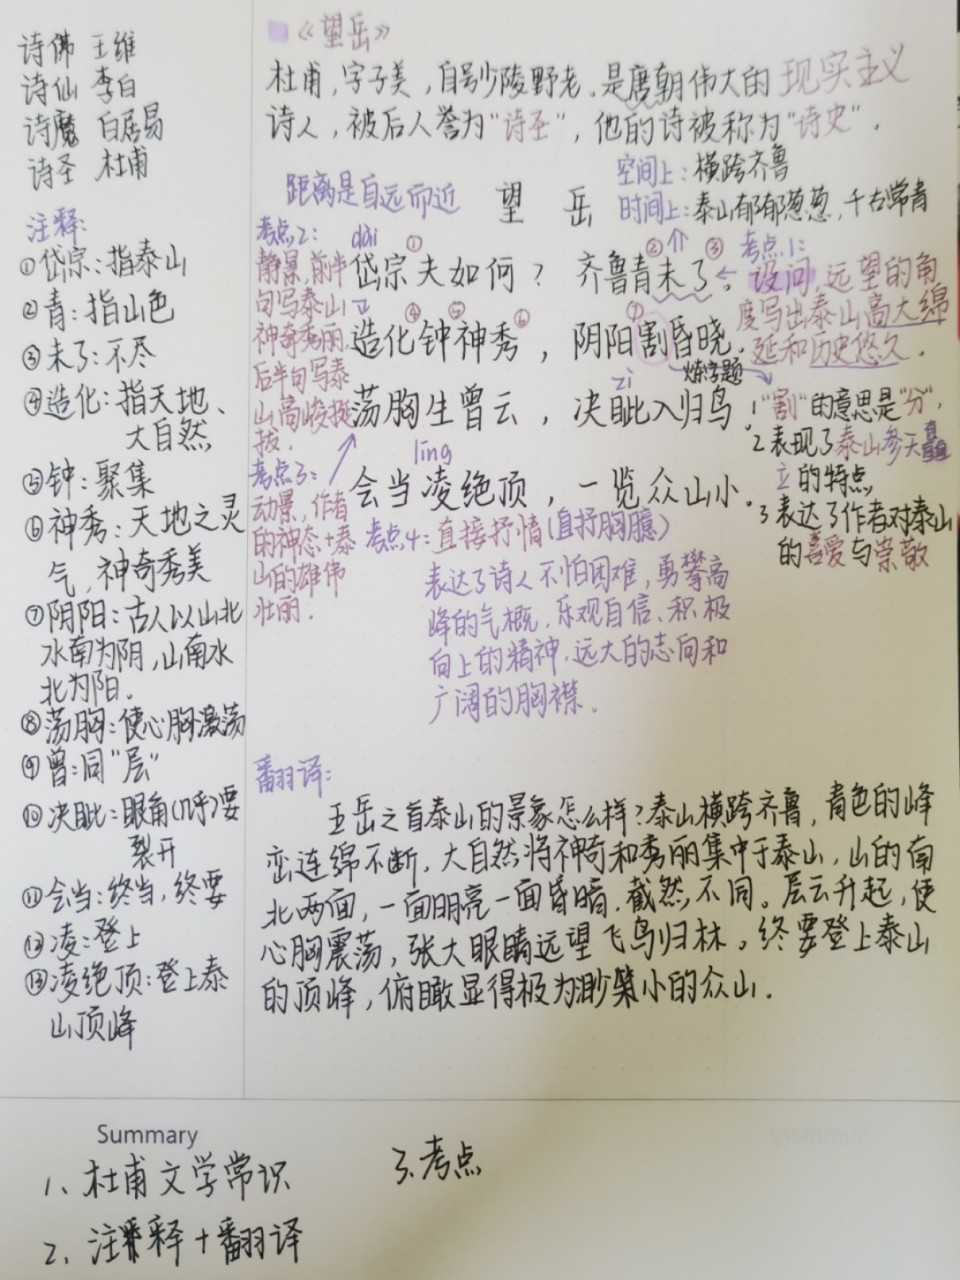 诗佛 王维
诗仙 李白
诗魔 白居易
诗圣 杜甫
注释:
①岱宗:指泰山
②青:指山色
③未了:不尽
④造化:指天地、
大自然
⑤钟:聚集
⑥神秀:天地之灵
气,神奇秀美
⑦阴阳:古人以山北
水南为阴,山南水
北为阳.
⑧荡胸:使心胸激荡
⑨曾:同"层"
⑩决眦:眼角(几乎)要
裂开
⑪会当:终当,终要
⑫凌:登上
⑬凌绝顶:登上泰
山顶峰
《望岳》
杜甫,字子美,自号少陵野老,是唐朝伟大的现实主义
诗人,被后人誉为"诗圣",他的诗被称为"诗史".
空间上:横跨齐鲁
距离是自远而近
望 岳
时间上:泰山郁郁葱葱,千古常青
dài
① ② ③
岱宗夫如何? 齐鲁青未了。
④ ⑤ ⑥ ⑦
造化钟神秀,阴阳割昏晓.
炼字题
zì
荡胸生曾云,决眦入归鸟.
líng
会当凌绝顶,一览众山小.
考点1:
设问,远望的角
度写出泰山高大绵
延和历史悠久.
1"割"的意思是"分",
2表现了泰山参天
立的特点
3表达了作者对泰山
的喜爱与崇敬
考点2:
静景,前半
句写泰山
神奇秀丽.
后半句写泰
山高峻挺
拔.
考点3:
动景,作者
的神态+泰
山的雄伟
壮丽.
考点4:直接抒情(直抒胸臆)
表达了诗人不怕困难,勇攀高
峰的气概,乐观自信、积极
向上的精神,远大的志向和
广阔的胸襟.
翻译:
五岳之首泰山的景象怎么样?泰山横跨齐鲁,青色的峰
峦连绵不断,大自然将神奇和秀丽集中于泰山,山的南
北两面,一面明亮一面昏暗,截然不同。层云升起,使
心胸震荡,张大眼睛远望飞鸟归林。终要登上泰山
的顶峰,俯瞰显得极为渺小的众山.
Summary
1、杜甫文学常识
2、注释+翻译
3.考点